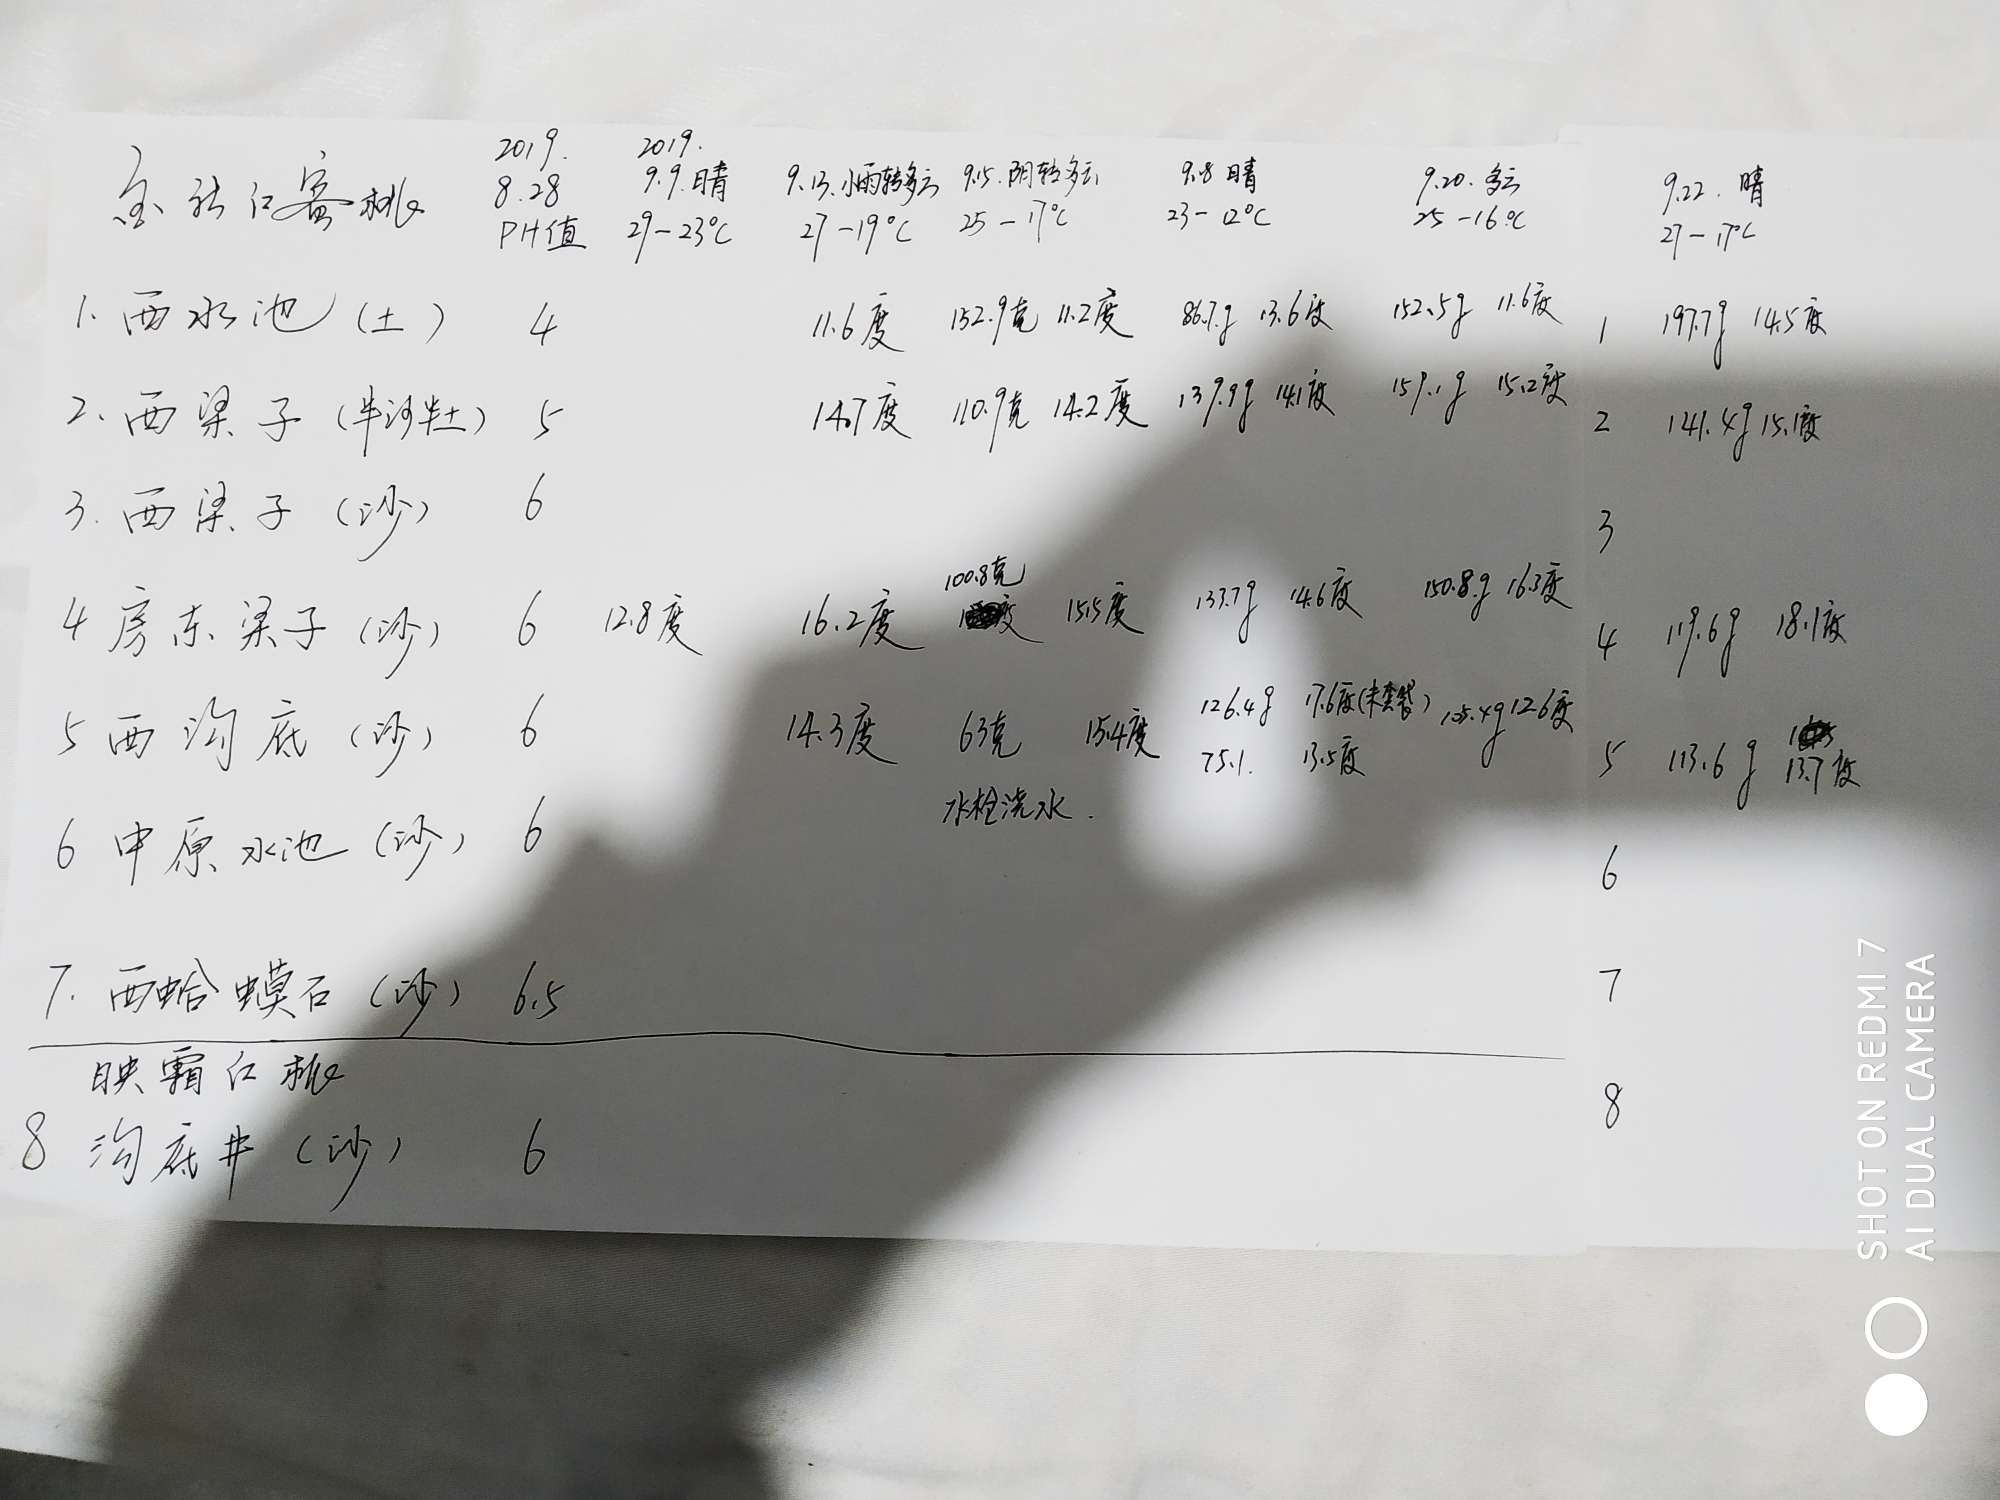 金秋红蜜桃 2019. 8.28 PH值 2019. 9.9.晴 29-23℃ 9.13.小雨转多云 27-19℃ 9.15.阴转多云 25-17℃ 9.8 晴 23-12℃ 9.20.多云 25-16℃ 9.22.晴 27-17℃
1.西水池(土) 4 11.6度 152.9克 11.2度 86.7g 13.6度 152.5g 11.6度 1 197.7g 14.5度
2.西梁子(半沙半土) 5 14.7度 110.9克 14.2度 139.9g 14.1度 159.1g 15.2度 2 141.4g 15.1度
3.西梁子(沙) 6 3
4 房东梁子(沙) 6 12.8度 16.2度 100.8克 15.5度 133.7g 14.6度 150.8g 16.3度 4 119.6g 18.1度
5 西沟底(沙) 6 14.3度 63克 15.4度 126.4g 17.6度(未套袋) 105.4g 12.6度 5 113.6g 13.7度
75.1. 13.5度
水栓浇水.
6 中原水池(沙) 6 6
7.西蛤蟆石(沙) 6.5 7
映霜红桃
8 沟底井(沙) 6 8
SHOT ON REDMI 7
AI DUAL CAMERA